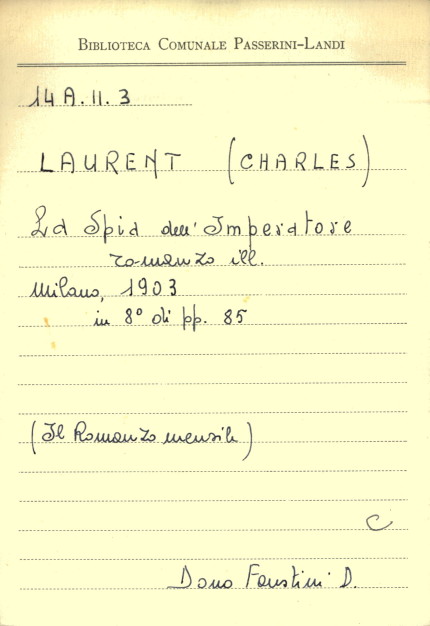 BIBLIOTECA COMUNALE PASSERINI-LANDI
14 A. II. 3
LAURENT (CHARLES)
La Spia dell'Imperatore
romanzo ill.
Milano, 1903
in 8° di pp. 85
(Il Romanzo mensile)
C
Dono Faustini D.